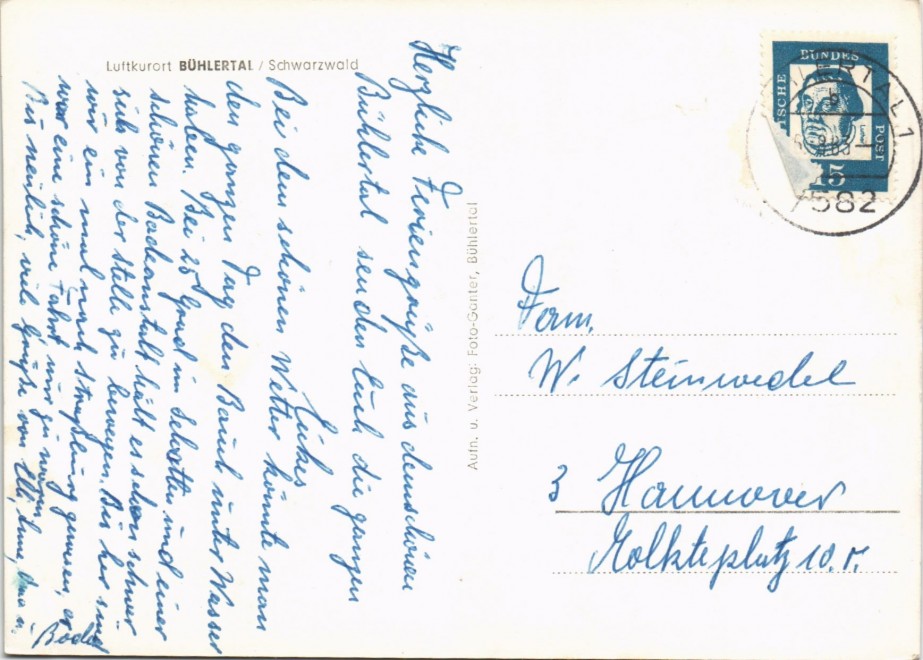 Luftkurort BÜHLERTAL / Schwarzwald
Herzliche Feriengrüße aus dem schönen
Bühlertal senden Euch die ganzen
Lükes
Bei dem schönen Wetter könnte man
den ganzen Tag den Bauch unter Wasser
haben. Bei 25 Grad im Schatten und einer
schönen Badeanstalt hält es schon schwer
sich von der Stelle zu bewegen. Bis her sind
wir ein mal nach Straßburg gewesen, es
war eine schöne Fahrt nur zu warm.
Bis neulich, viele Grüße von Elli,
Bodo
Aufn. u. Verlag: Foto-Ganter, Bühlertal
DEUTSCHE BUNDESPOST
15
BÜHLERTAL 1
b
7582
Fam.
W. Steinwedel
3 Hannover
Molkteplatz 10. r.